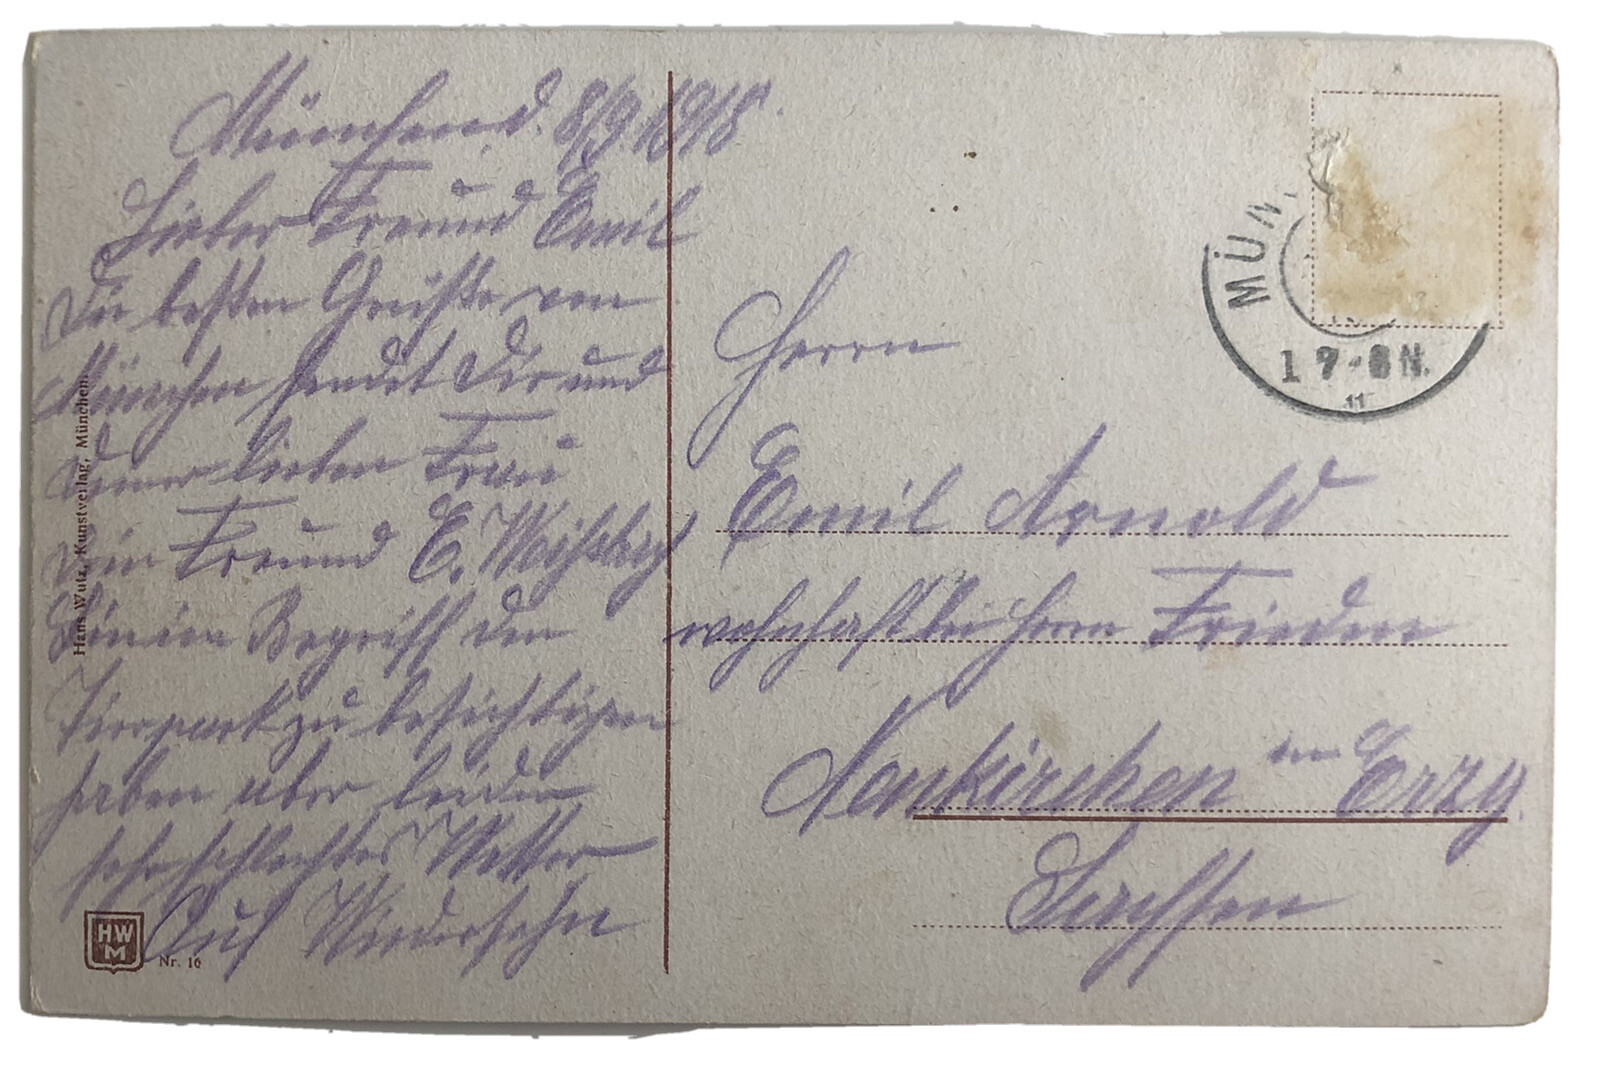 München, d. 8/9.1918.
Lieber Freund Emil
Die besten Grüße von
München sendet Dir und
Deiner lieben Frau
Dein Freund E.
Sind im Begriff den
Tierpark zu besichtigen
haben aber leider
sehr schlechtes Wetter
Auf Wiedersehn
Hans Wutz, Kunstverlag, München
HW
M
Nr. 10
MÜN
17-8N.
Herrn
Emil Arnold
wohnhaft bei Herrn
Neukirchen im Erzg.
Sachsen